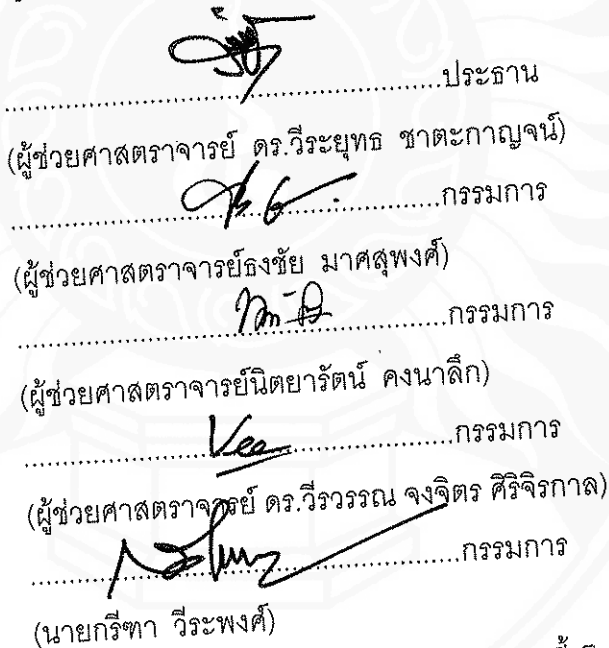 ....................ประธาน
(ผู้ช่วยศาสตราจารย์ ดร.วีระยุทธ ชาตะกาญจน์)
....................กรรมการ
(ผู้ช่วยศาสตราจารย์ธงชัย มาศสุพงศ์)
....................กรรมการ
(ผู้ช่วยศาสตราจารย์นิตยารัตน์ คงนาลึก)
Vee....................กรรมการ
(ผู้ช่วยศาสตราจารย์ ดร.วีรวรรณ จงจิตร ศิริจิรกาล)
....................กรรมการ
(นายกรีฑา วีระพงศ์)